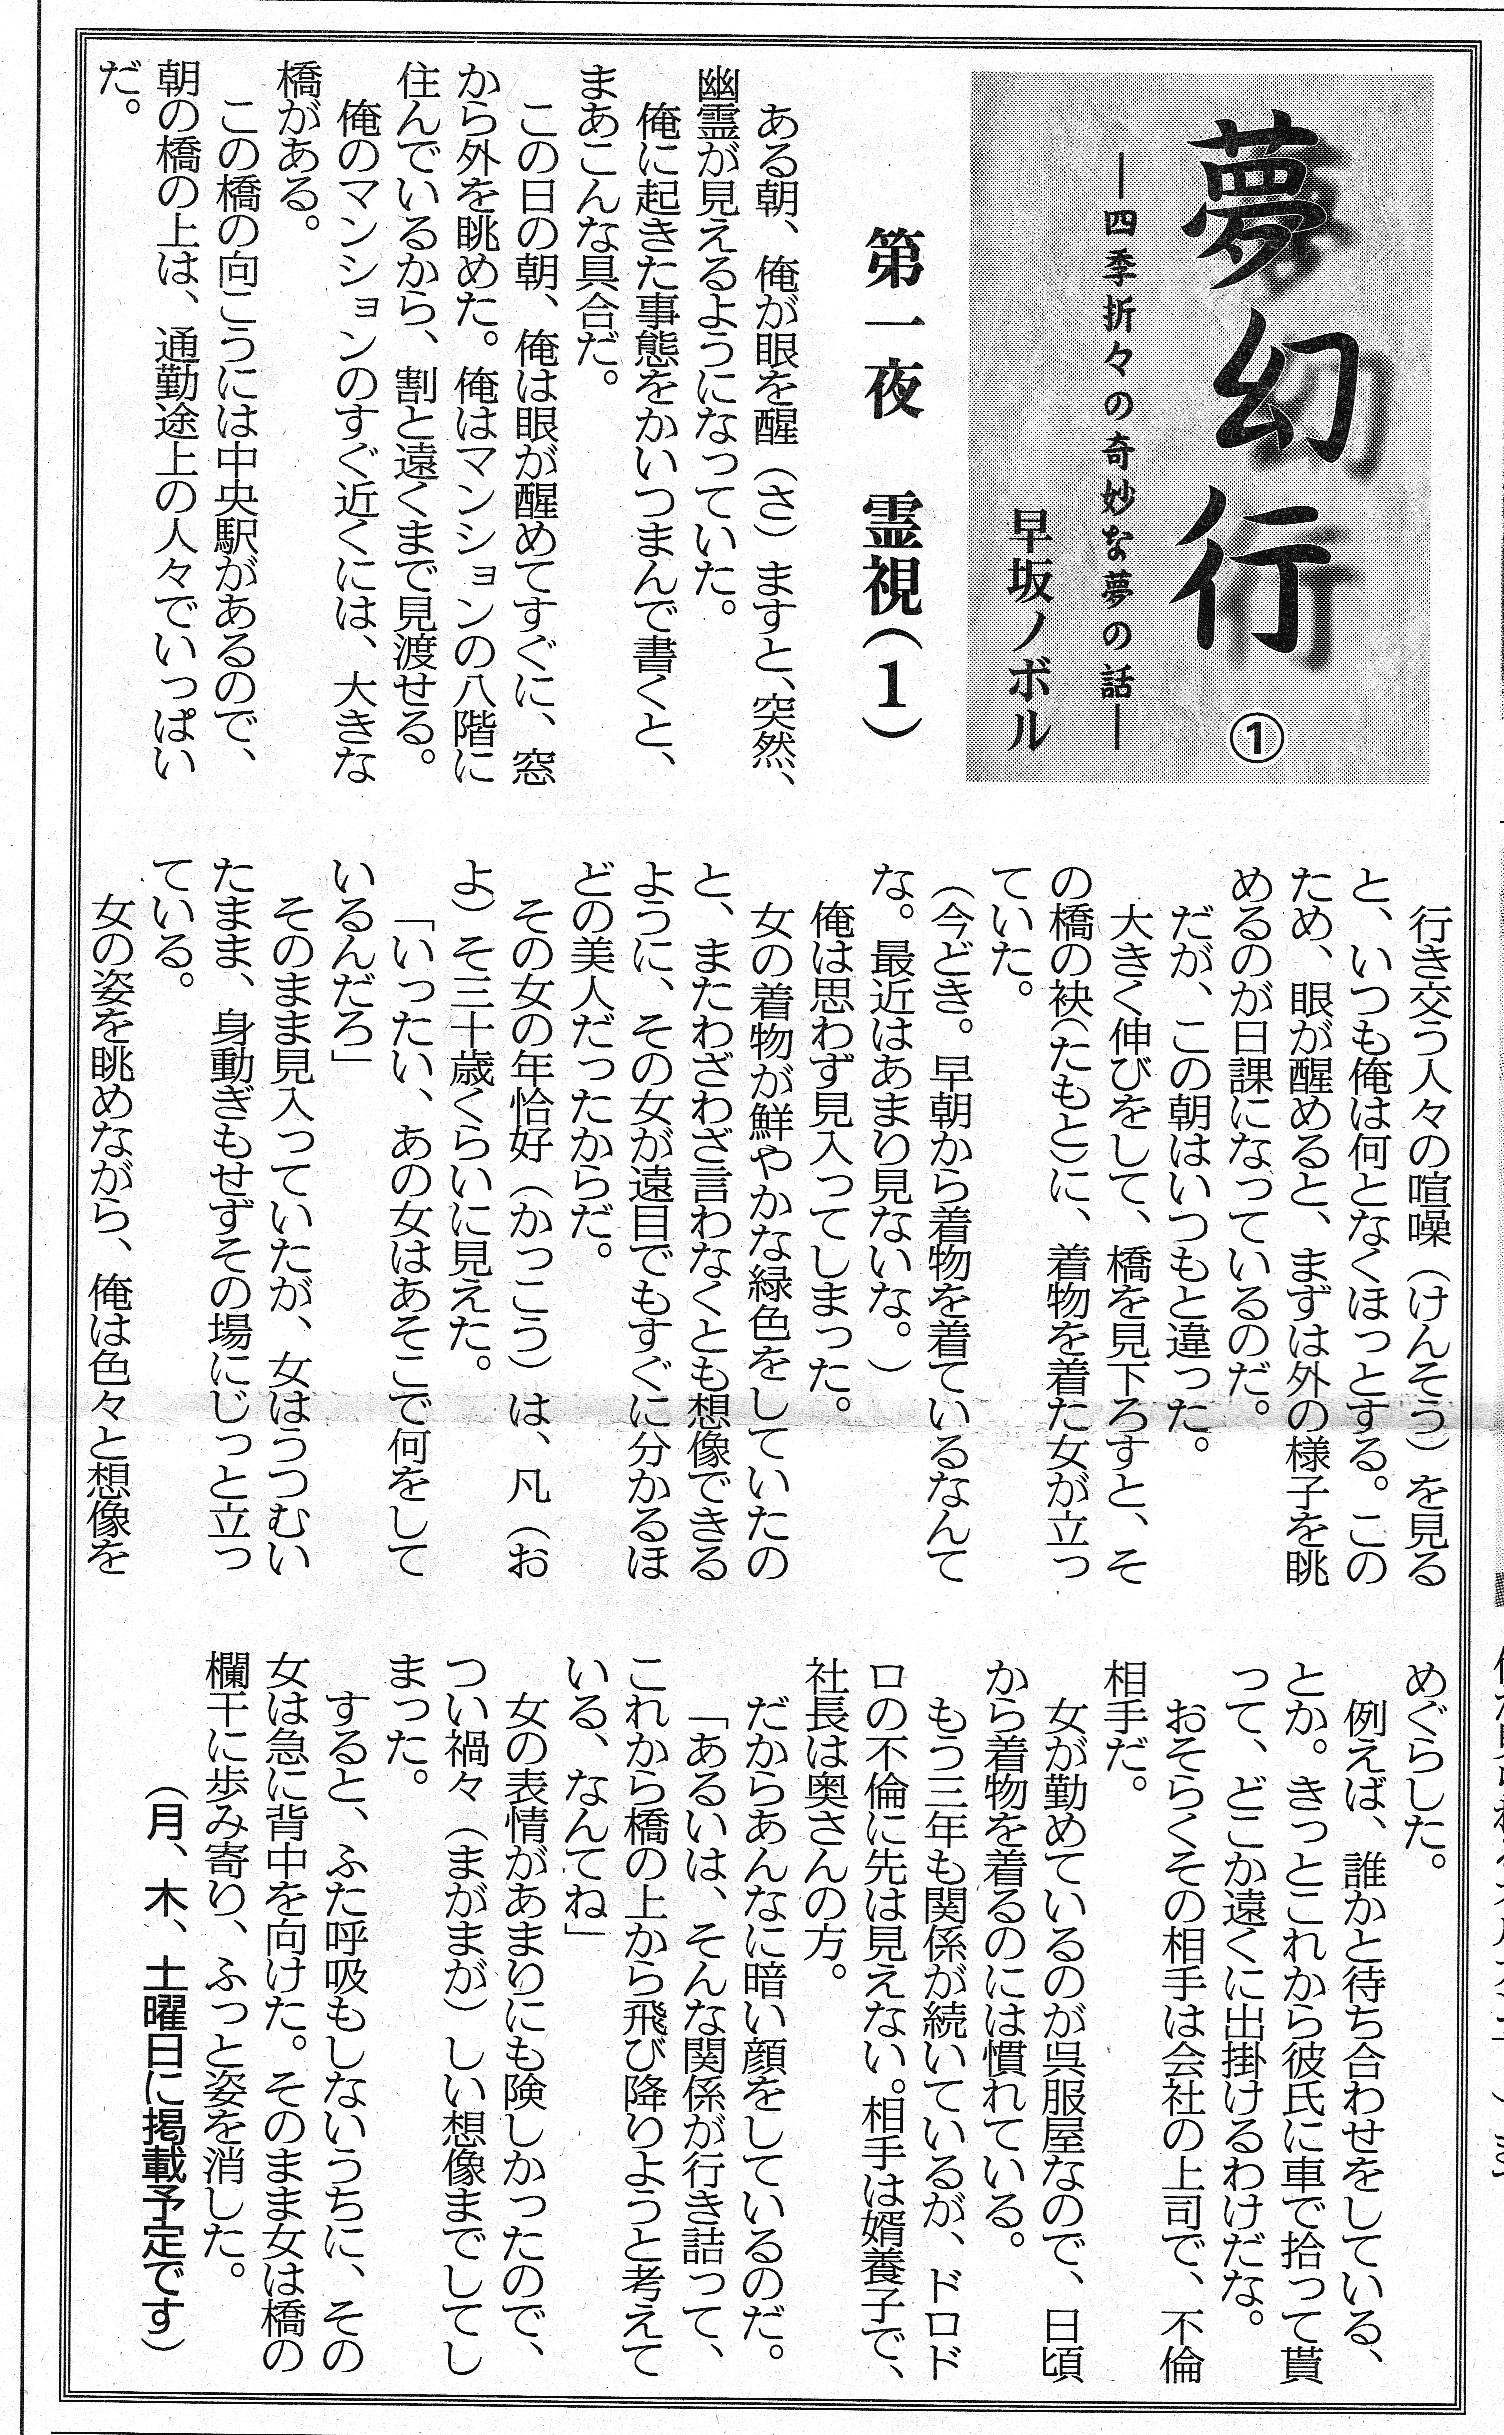 夢幻行 ①
―四季折々の奇妙な夢の話―
早坂ノボル
第一夜　霊視(1)
　ある朝、俺が眼を醒（さ）ますと、突然、
幽霊が見えるようになっていた。
　俺に起きた事態をかいつまんで書くと、
まあこんな具合だ。
　この日の朝、俺は眼が醒めてすぐに、窓
から外を眺めた。俺はマンションの八階に
住んでいるから、割と遠くまで見渡せる。
　俺のマンションのすぐ近くには、大きな
橋がある。
　この橋の向こうには中央駅があるので、
朝の橋の上は、通勤途上の人々でいっぱい
だ。
　行き交う人々の喧噪（けんそう）を見る
と、いつも俺は何となくほっとする。この
ため、眼が醒めると、まずは外の様子を眺
めるのが日課になっているのだ。
　だが、この朝はいつもと違った。
　大きく伸びをして、橋を見下ろすと、そ
の橋の袂(たもと)に、着物を着た女が立っ
ていた。
（今どき。早朝から着物を着ているなんて
な。最近はあまり見ないな。）
　俺は思わず見入ってしまった。
　女の着物が鮮やかな緑色をしていたの
と、またわざわざ言わなくとも想像できる
ように、その女が遠目でもすぐに分かるほ
どの美人だったからだ。
　その女の年恰好（かっこう）は、凡（お
よ）そ三十歳くらいに見えた。
　「いったい、あの女はあそこで何をして
いるんだろ」
　そのまま見入っていたが、女はうつむい
たまま、身動ぎもせずその場にじっと立っ
ている。
　女の姿を眺めながら、俺は色々と想像を
めぐらした。
　例えば、誰かと待ち合わせをしている、
とか。きっとこれから彼氏に車で拾って貰
って、どこか遠くに出掛けるわけだな。
　おそらくその相手は会社の上司で、不倫
相手だ。
　女が勤めているのが呉服屋なので、日頃
から着物を着るのには慣れている。
　もう三年も関係が続いているが、ドロド
ロの不倫に先は見えない。相手は婿養子で、
社長は奥さんの方。
　だからあんなに暗い顔をしているのだ。
　「あるいは、そんな関係が行き詰って、
これから橋の上から飛び降りようと考えて
いる、なんてね」
　女の表情があまりにも険しかったので、
つい禍々（まがまが）しい想像までしてし
まった。
　すると、ふた呼吸もしないうちに、その
女は急に背中を向けた。そのまま女は橋の
欄干に歩み寄り、ふっと姿を消した。
（月、木、土曜日に掲載予定です）